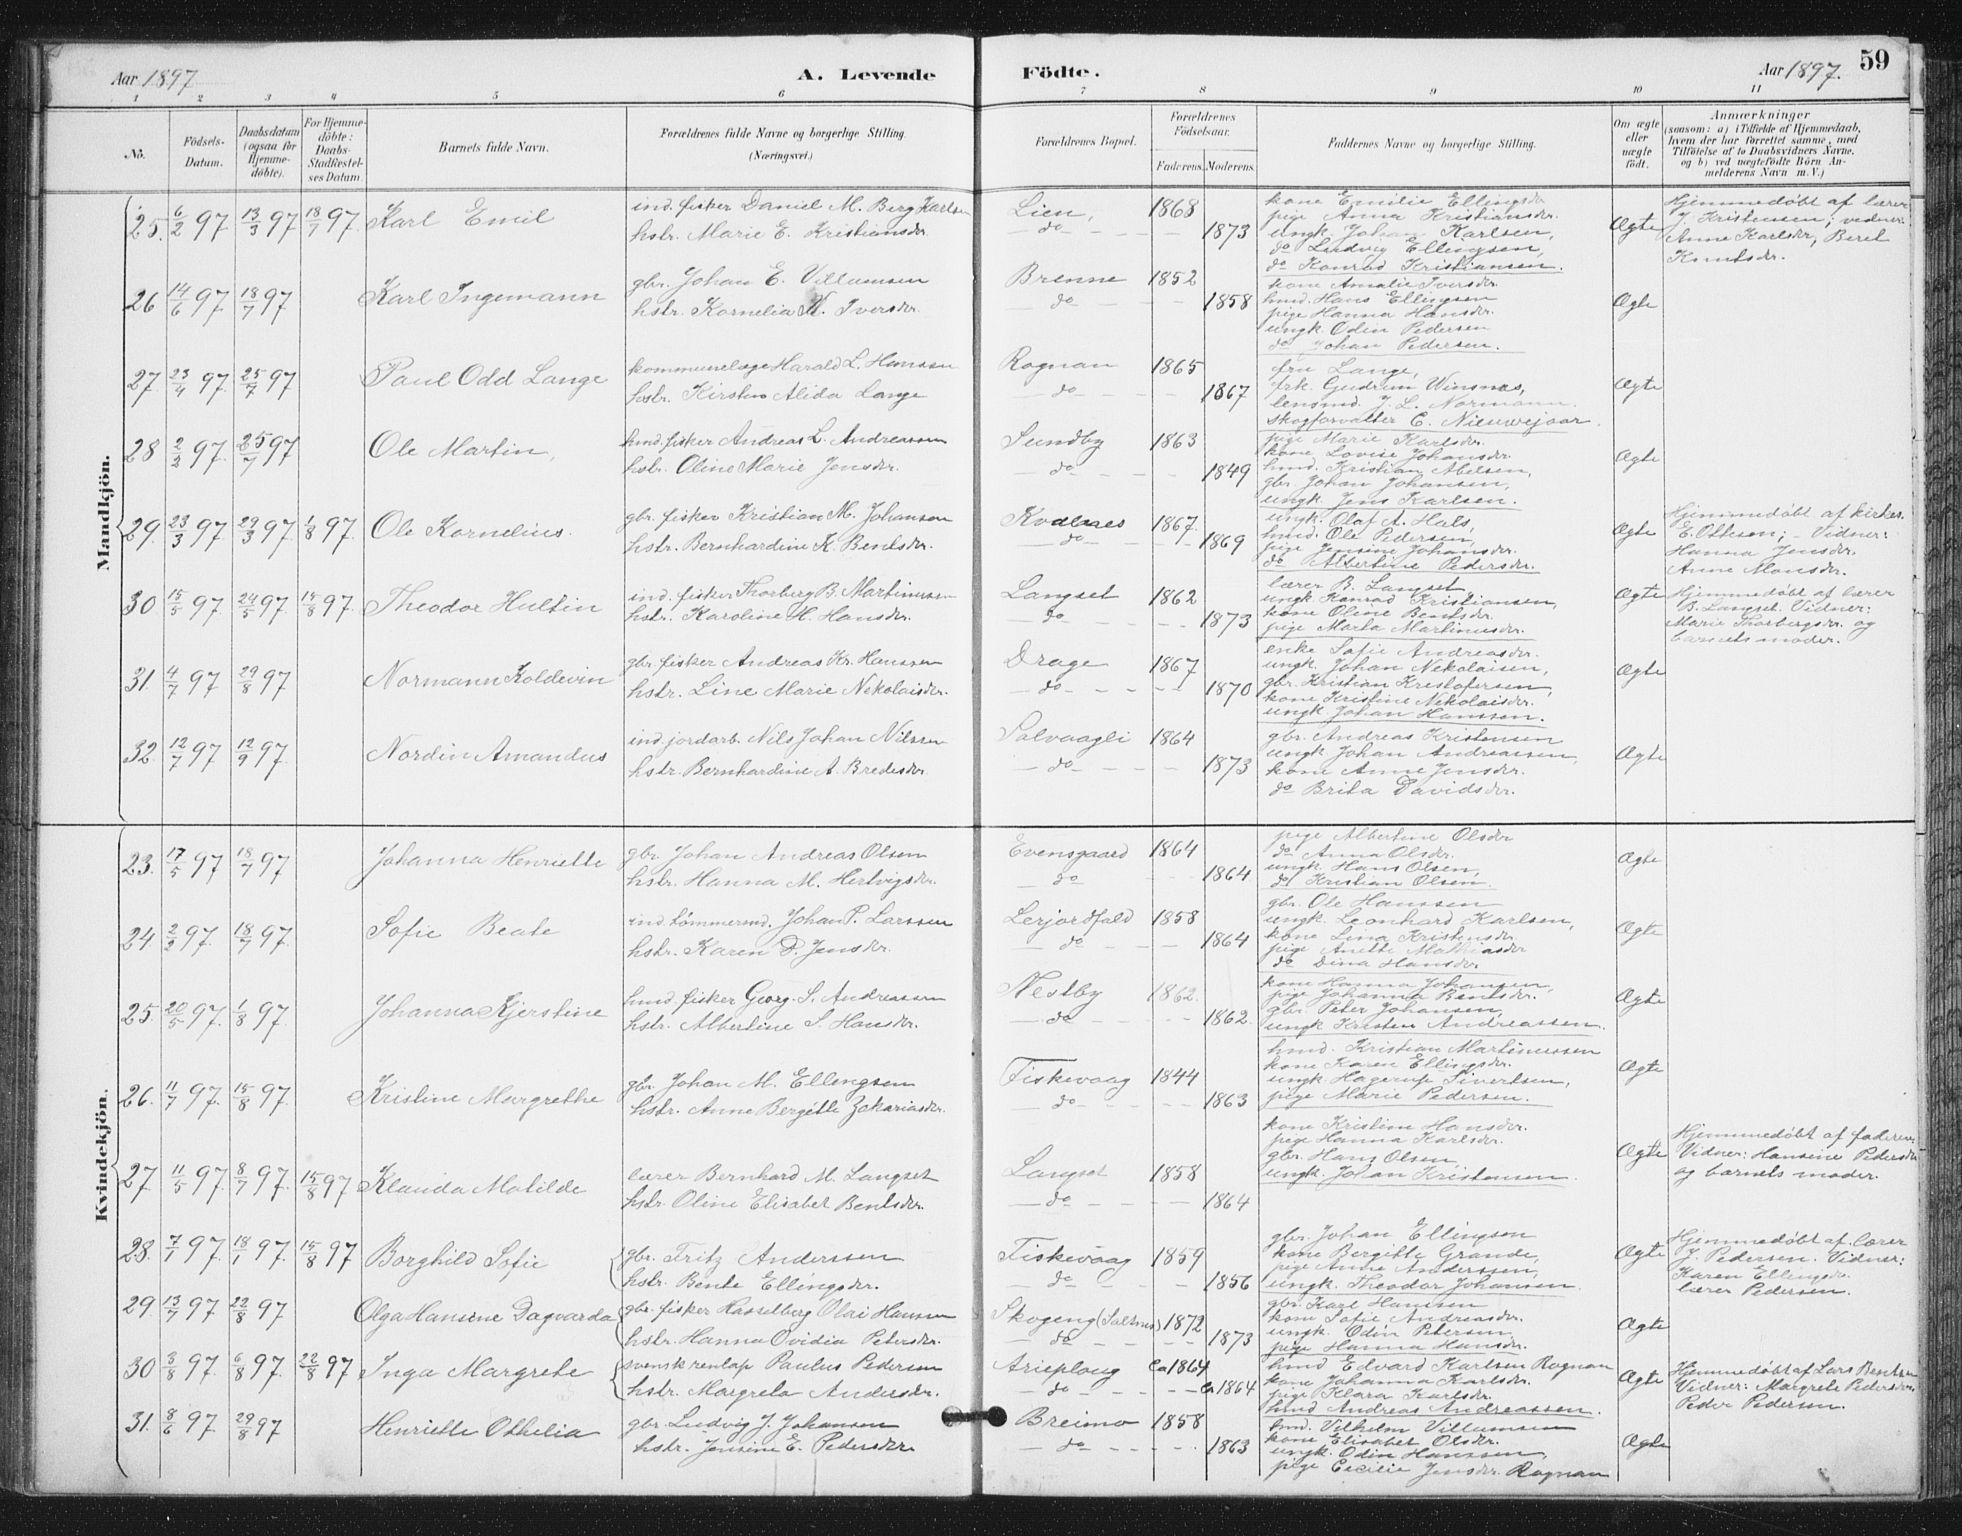 Aar 1897
A. Levende
Födte.
Aar 1897.
59
1 2 3 4 5 6 7 8 9 10 11
No.
Födsels-Datum.
Daabsdatum (ogsaa for Hjemme-döbte).
For Hjemme-döbte: Daabs-Stadfæstelses Datum.
Barnets fulde Navn.
Forældrenes fulde Navne og borgerlige Stilling. (Næringsvei.)
Forældrenes Bopæl.
Forældrenes Födselsaar.
Faderens. Moderens.
Faddernes Navne og borgerlige Stilling.
Om ægte eller uægte födt.
Anmærkninger (saasom: a) i Tilfælde af Hjemmedaab, hvem der har forrettet samme, med Tilföielse af to Daabsvidners Navne, og b) ved uægtefödte Börn Anmelderens Navn m. V.)
Mandkjön.
25. 6/2 97 13/3 97 18/7 97. Karl Emil
ind. fisker Daniel M. Berg Karlsen
hstr. Marie E. Kristiansdr.
Lien, 1868
do 1873
kone Emilie Ellingsdr
pige Anna Kristiansdr.
ungk. Johan Karlsen,
do Ludvig Ellingsen,
do Konrad Kristiansen.
Ægte
Hjemmedøbt af lærer
J. Kristensen; vidner:
Anne Karlsdr, Beret
Knutsdr.
26 14/6 97 18/7 97 Karl Ingemann
gbr. Johan E. Villumsen
hstr. Kornelia K. Iversdr.
Brenne 1852
do 1858
kone Amalie Iversdr.
hmd. Hans Ellingsen
pige Hanna Hansdr.
ungk Odin Pedersen
do Johan Pedersen.
Ægte
27 23/4 97. 25/7 97 Paul Odd Lange
kommunelæge Harald L. Hanssen
hstr. Kirsten Alida Lange
Rognan 1865
do 1867
fru Lange,
frk. Gudrun Winsnes,
lensmd. J. L. Normann.
skogforvalter C. Nieuwejaar.
Ægte
28 2/2 97. 25/7 97 Ole Martin,
hmd. fisker Andreas L. Andreassen
hstr. Oline Marie Jensdr.
Sundby 1863
do 1849
pige Marie Karlsdr.
kone Lovise Johansdr.
hmd. Kristian Abelsen,
gbr. Johan Johansen,
ungk. Jens Karlsen.
Ægte
29. 23/3 97 29/3 97 1/8 97. Ole Kornelius.
gbr. fisker Kristian M. Johansen
hstr. Bernhardine K. Bentsdr.
1867.
do 1869
ungk. Olaf A. Hals,
hmd. Ole Pedersen,
pige Jensine Johansdr.
do Albertine Pedersdr.
Ægte
Hjemmedøbt af kirkes.
E. Ottesen; - Vidner:
Hanna Jensdr.
Anne Monsdr.
30 15/5 97. 24/5 97 15/8 97. Theodor Hultin
ind. fisker Thorberg B. Martinussen
hstr. Karoline H. Hansdr.
Langset 1862
do 1873
lærer B. Langset
ungk. Konrad Kristiansen,
kone Oline Bentsdr.
pige Marta Martinusdr.
Ægte
Hjemmedøbt af lærer
B. Langset. Vidner:
Marie Thorbergsdr. og
barnets moder.
31. 4/7 97 29/8 97 Normann Koldevin
gbr. fisker Andreas Kr. Hanssen
hstr. Line Marie Nekolaisdr.
Drage 1867
do 1870
enke Sofie Andreasdr.
ungk. Johan Nekolaisen,
gbr. Kristian Kristofersen,
kone Kristine Nekolaisdr.
ungk. Johan Hanssen.
Ægte
32. 12/7 97 12/9 97. Nordin Amandus
ind. jordarb. Nils Johan Nilssen
hstr. Bernhardine A. Bredesdr.
Solvaagli 1864
do 1873
gbr. Andreas Kristensen
ungk. Johan Andreassen,
kone Anne Jensdr.
do Brita Davidsdr.
Ægte
Kvindekjön.
23. 17/5 97 18/7 97 Johanna Henriette
gbr. Johan Andreas Olsen
hstr. Hanna M. Hertvigsdr.
Evensgaard 1864
do 1864
pige Albertine Olsdr
do Anna Olsdr.
ungk Hans Olsen,
do Kristian Olsen.
Ægte
24. 2/2 97. 18/7 97. Sofie Beate
ind. tømmermd. Johan P. Larssen
hstr. Karen D. Jensdr.
Lerjordfald 1858
do 1864
gbr. Ole Hanssen
ungk. Leonhard Karlsen,
kone Lina Kristensdr.
pige Anette Mathiasdr
do Dina Hansdr.
Ægte
25. 20/5 97. 1/8 97. Johanna Kjerstine
hmd. fisker Georg. S. Andreassen
hstr. Albertine S. Hansdr.
Nestby 1862.
do 1862.
kone Hanna Johansen,
pige Johanna Bentsdr.
gbr. Peter Johansen,
ungk Kristen Andreassen.
Ægte
26. 11/7 97. 15/8 97. Kristine Margrethe
gbr. Johan M. Ellingsen
hstr. Anne Bergitte Zakariasdr.
Fiskevaag 1844
do 1863
hmd. Kristian Martinussen
kone Karen Ellingsdr.
ungk. Hagerup Sivertsen,
pige Marie Pedersen.
Ægte
27 11/5 97. 8/7 97. 15/8 97 Klauda Matilde
lærer Bernhard M. Langset
hstr. Oline Elisabet Bentsdr.
Langset 1858
do 1864
kone Kristine Hansdr.
pige Hanna Karlsdr.
gbr. Hans Olsen,
ungk. Johan Kristensen.
Ægte
Hjemmedøbt af faderen
Vidner: Hansine Pedersdr
og barnets moder.
28. 7/1 97. 18/1 97. 15/8 97 Borghild Sofie
gbr. Fritz Anderssen
hstr. Bente Ellingsdr.
Fiskevaag 1859
do 1856
gbr. Johan Ellingsen
kone Bergitte Grande,
pige Anne Anderssen,
ungk. Theodor Johansen.
Ægte
Hjemmedøbt af. lærer
J. Pedersen. Vidner:
Karen Ellingsdr.
lærer Pedersen.
29. 13/7 97 22/8 97 Olga Hansine Dagvarda
gbr. fisker Hasselberg Olai Hansen
hstr. Hanna Ovidia Petersdr.
Skogeng (Saltnes) 1872
do 1873
gbr. Karl Hanssen
kone Sofie Andreasdr.
ungk. Odin Petersen
pige Hanna Hansdr.
Ægte
30 3/8 97. 6/8 97. 22/8 97 Inga Margrete
svensk renlap Paulus Pedersen
hstr. Margreta Andersdr.
Arieploug ca 1864
do ca 1864
hmd Edvard Karlsen Rognan
kone Johanna Karlsdr.
pige Klara Karlsdr.
hmd Andreas Andreassen.
Ægte
Hjemmedøbt af Lars Bentsen
Vidner: Margrete Pedersdr.
Peder Pedersen.
31. 8/6 97. 29/8 97 Henriette Othelia
gbr Ludvig J. Johansen
hstr. Jensine E. Pedersdr.
Breimo 1858
do 1863
hmd. Vilhelm Villumsen
kone Elisabet Olsdr.
ungk. Odin Hanssen,
pige Cecilie Jensdr. Rognan
Ægte